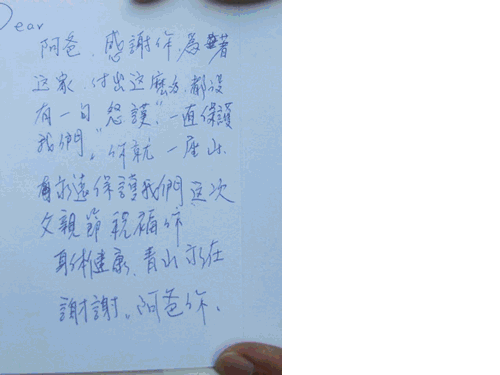 Dear
阿爸、感謝你為著
这家、付出这麼多,都沒
有一日怨護",一直保護
我們。你就 一座山、
永遠保護我們 这次
父親節 祝福你
身体健康、青山永在
謝謝。阿爸你、